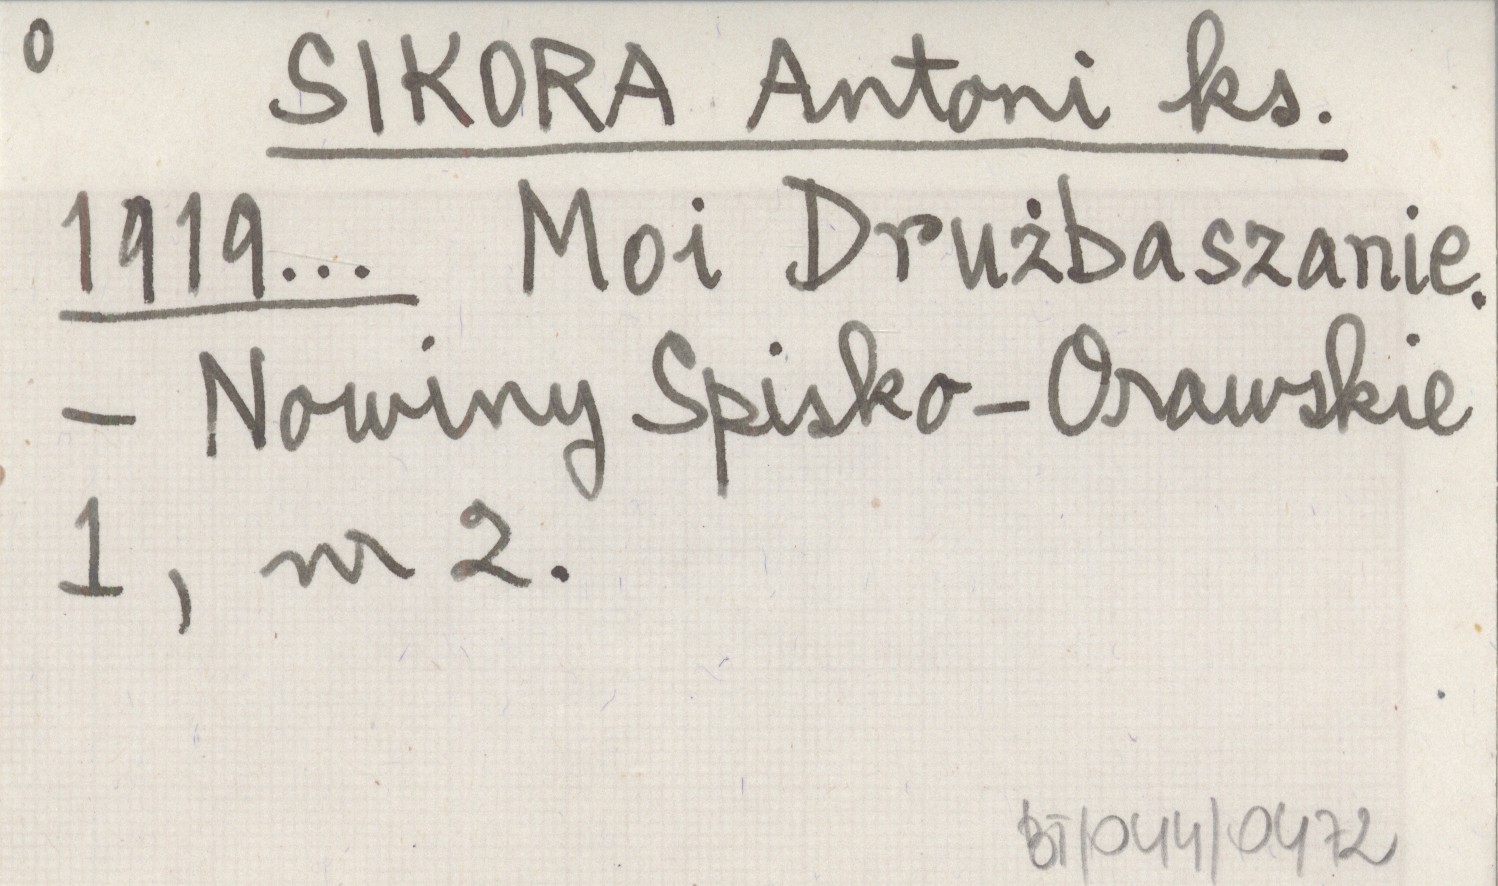 0
SIKORA Antoni ks.
1919... Moi Drużbaszanie.
– Nowiny Spisko-Orawskie
1, nr 2.
BT/044/0472